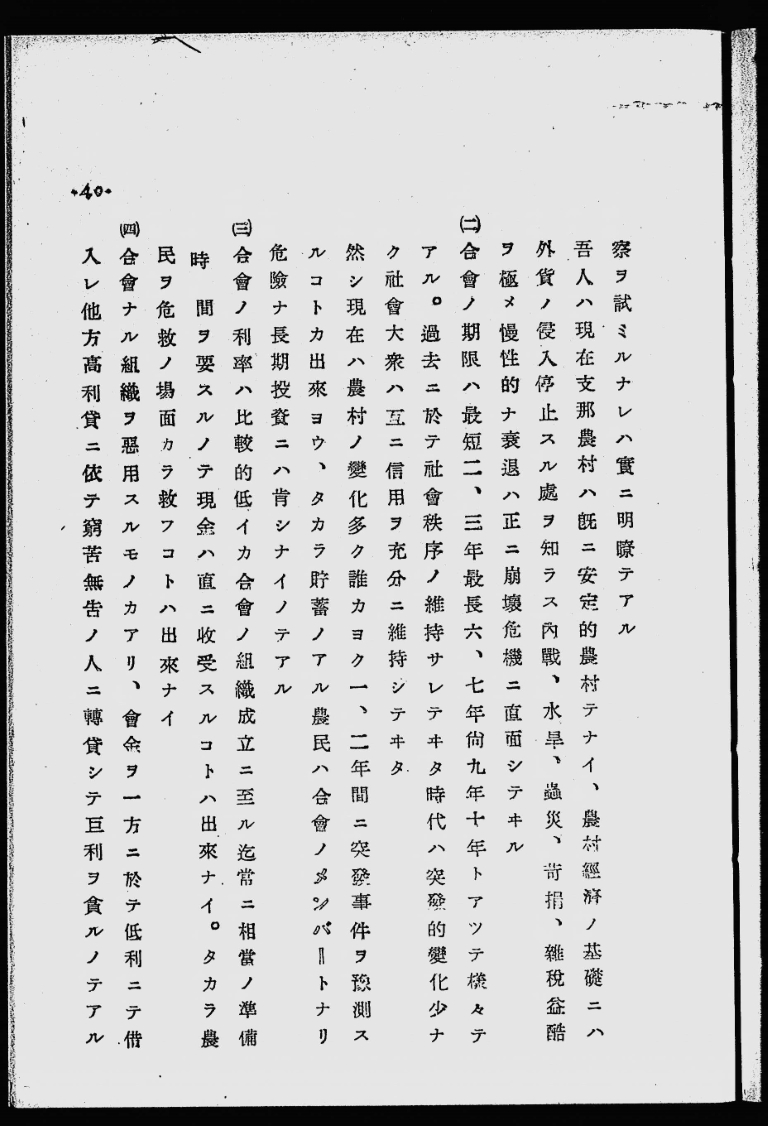 察ヲ試ミルナレハ實ニ明瞭テアル
吾人ハ現在支那農村ハ既ニ安定的農村テナイ、農村經濟ノ基礎ニハ
外貨ノ侵入停止スル處ヲ知ラス內戰、水旱、蟲災、苛捐、雜稅益酷
ヲ極メ慢性的ナ衰退ハ正ニ崩壞危機ニ直面シテヰル
㈡合會ノ期限ハ最短二、三年最長六、七年尙九年十年トアツテ樣々テ
アル。過去ニ於テ社會秩序ノ維持サレテヰタ時代ハ突發的變化少ナ
ク社會大衆ハ互ニ信用ヲ充分ニ維持シテヰタ
然シ現在ハ農村ノ變化多ク誰カヨク一、二年間ニ突發事件ヲ豫測ス
ルコトカ出來ヨウ、タカラ貯蓄ノアル農民ハ合會ノメンバートナリ
危險ナ長期投資ニハ肯シナイノテアル
㈢合會ノ利率ハ比較的低イカ合會ノ組織成立ニ至ル迄常ニ相當ノ準備
時間ヲ要スルノテ現金ハ直ニ收受スルコトハ出來ナイ。タカラ農
民ヲ危救ノ場面カラ救フコトハ出來ナイ
㈣合會ナル組織ヲ惡用スルモノカアリ、會金ヲ一方ニ於テ低利ニテ借
入レ他方高利貸ニ依テ窮苦無告ノ人ニ轉貸シテ巨利ヲ貪ルノテアル
·40·